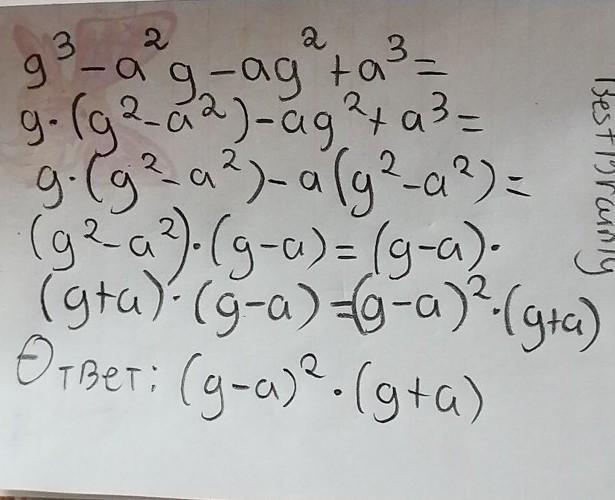 g³ - a²g - ag² + a³ =
g·(g² - a²) - ag² + a³ =
g·(g² - a²) - a(g² - a²) =
(g² - a²)·(g - a) = (g - a)·
(g + a)·(g - a) = (g - a)²·(g + a)
Ответ: (g - a)²·(g + a)